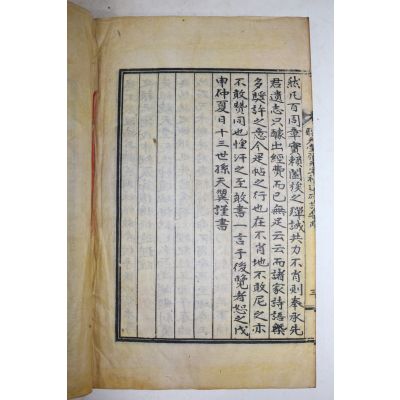 然凡百周章實賴閤後之殫誠共力不肖則奉承先
君遺志只據出經費而已無足云云而諸家詩語槩
多奬許之意今是帖之行也在不肖地不敢尼之亦
不敢贊同也惶汗之至敢書一言于後覽者恕之戊
申仲夏日十三世孫天翼謹書
三